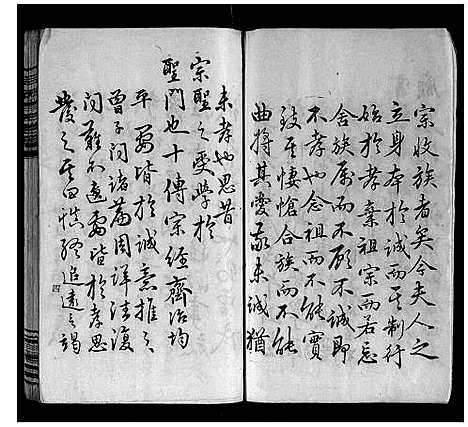 宗收族者矣今夫人之
立身本於誠而其制行
始於孝棄祖宗而若忘
舍族属而不顧不誠即
不孝也念祖而不能實
致其悽愴合族而不能
曲將其愛敬未誠猶
未孝也思昔
宗聖之受學於
聖門也十傳宗經齊治均
平要皆於誠意推之
曾子問諸篇周詳往復
问難不遠要皆於孝思
發之其曰慎終追遠之謁
四